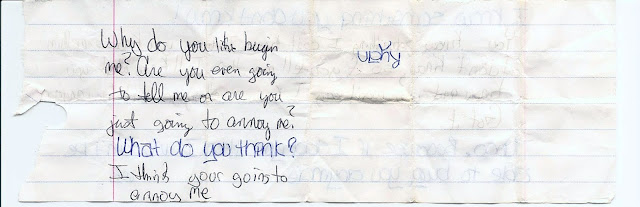 Why do you like bugin
me? Are you even going
to tell me or are you
just going to annoy me?
What do you think?
I think your going to
annoy me